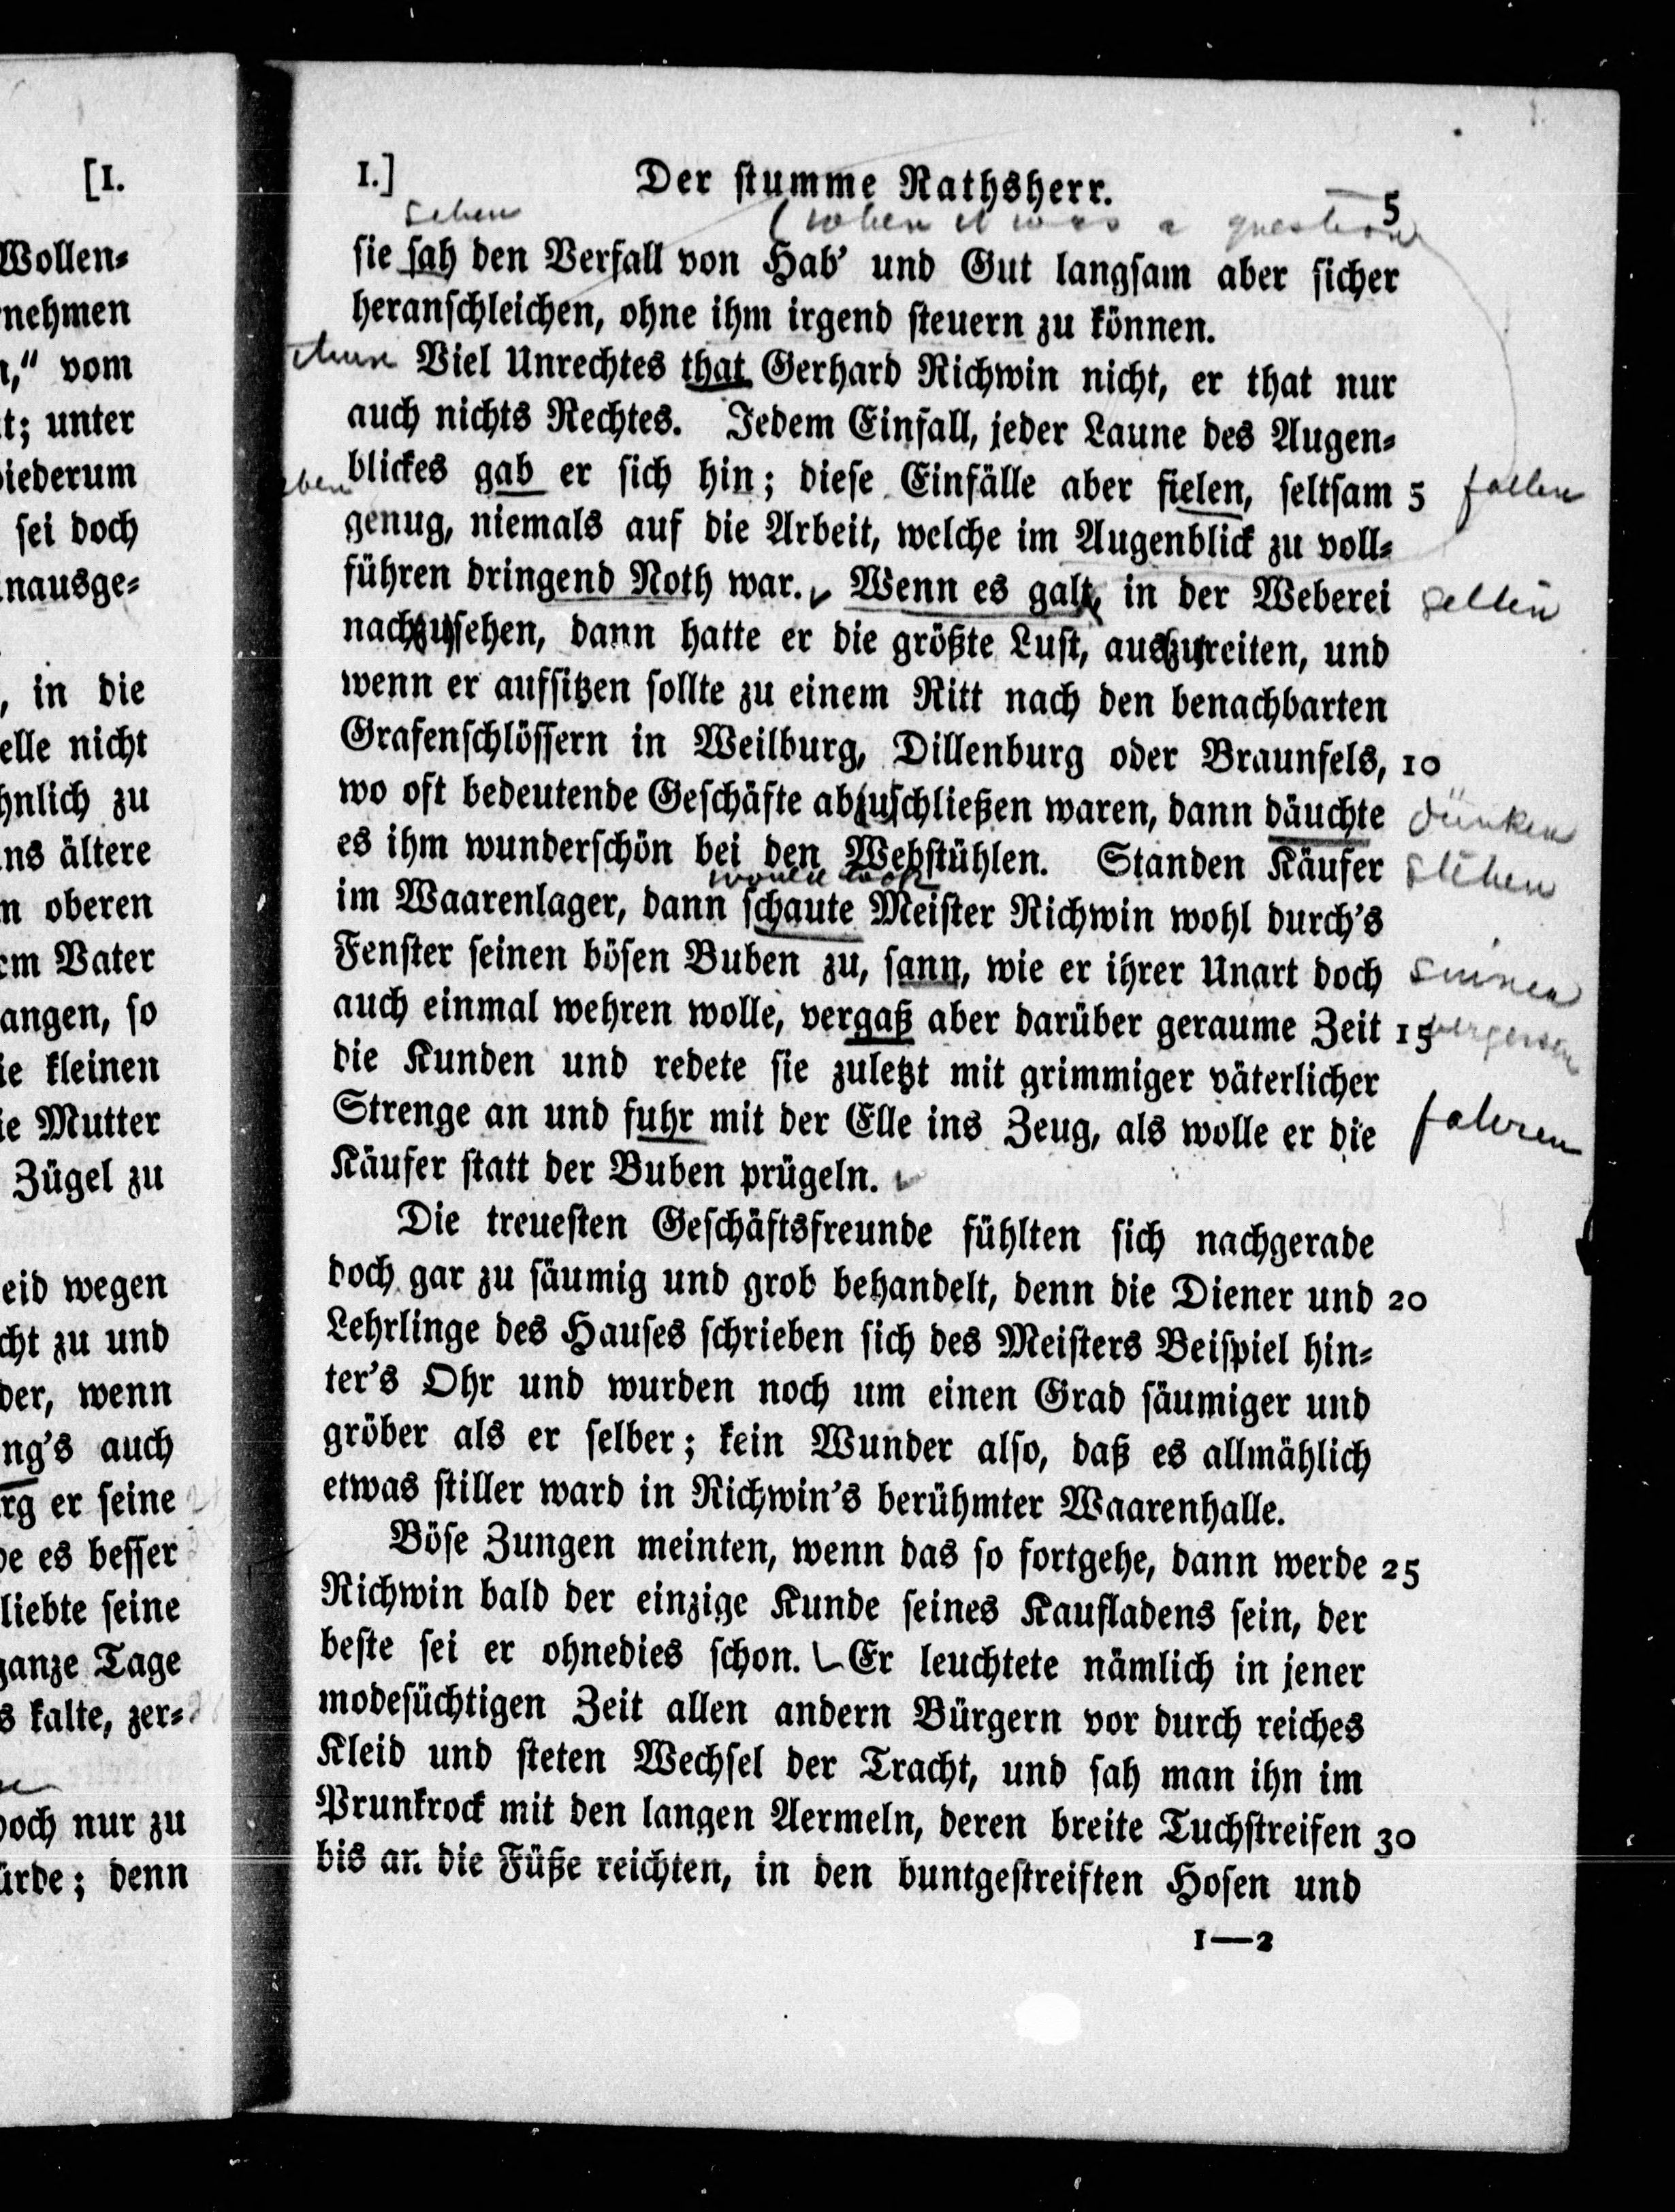 [I.
Wollen-
nehmen
vom
unter
sei doch
in die
nicht
zu
ältere
oberen
Vater
so
kleinen
Mutter
Zügel zu
wegen
zu und
wenn
auch
er seine
es besser
liebte seine
ganze Tage
kalte, zer-
nur zu
denn
I.] Der stumme Rathsherr. 5
sehen (when it was a question
sie sah den Verfall von Hab' und Gut langsam aber sicher
heranschleichen, ohne ihm irgend steuern zu können.
Viel Unrechtes that Gerhard Richwin nicht, er that nur
auch nichts Rechtes. Jedem Einfall, jeder Laune des Augen-
blickes gab er sich hin; diese Einfälle aber fielen, seltsam 5 fallen
genug, niemals auf die Arbeit, welche im Augenblick zu voll-
führen dringend Noth war. Wenn es galt, in der Weberei gelten
nachzusehen, dann hatte er die größte Lust, auszureiten, und
wenn er aufsitzen sollte zu einem Ritt nach den benachbarten
Grafenschlössern in Weilburg, Dillenburg oder Braunfels, 10
wo oft bedeutende Geschäfte abzuschließen waren, dann däuchte dünken
es ihm wunderschön bei den Webstühlen. Standen Käufer stehen
would look
im Waarenlager, dann schaute Meister Richwin wohl durch's
Fenster seinen bösen Buben zu, sann, wie er ihrer Unart doch sinnen
auch einmal wehren wolle, vergaß aber darüber geraume Zeit 15 vergessen
die Kunden und redete sie zuletzt mit grimmiger väterlicher
Strenge an und fuhr mit der Elle ins Zeug, als wolle er die fahren
Käufer statt der Buben prügeln.
Die treuesten Geschäftsfreunde fühlten sich nachgerade
doch gar zu säumig und grob behandelt, denn die Diener und 20
Lehrlinge des Hauses schrieben sich des Meisters Beispiel hin-
ter's Ohr und wurden noch um einen Grad säumiger und
gröber als er selber; kein Wunder also, daß es allmählich
etwas stiller ward in Richwin's berühmter Waarenhalle.
Böse Zungen meinten, wenn das so fortgehe, dann werde 25
Richwin bald der einzige Kunde seines Kaufladens sein, der
beste sei er ohnedies schon. Er leuchtete nämlich in jener
modesüchtigen Zeit allen andern Bürgern vor durch reiches
Kleid und steten Wechsel der Tracht, und sah man ihn im
Prunkrock mit den langen Aermeln, deren breite Tuchstreifen 30
bis an die Füße reichten, in den buntgestreiften Hosen und
I—2